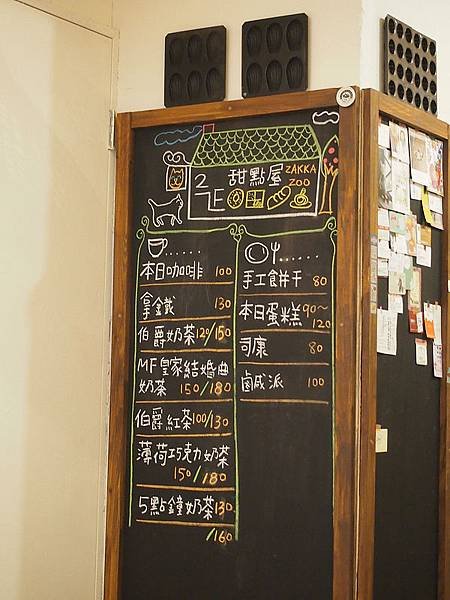 2/E 甜點屋 ZAKKA
ZOO
本日咖啡 100
拿鐵 130
伯爵奶茶 120/150
MF皇家結婚曲
奶茶 150/180
伯爵紅茶 100/130
薄荷巧克力奶茶
150/180
5點鐘奶茶 130
/160
手工餅干 80
本日蛋糕 90~
120
司康 80
鹹派 100